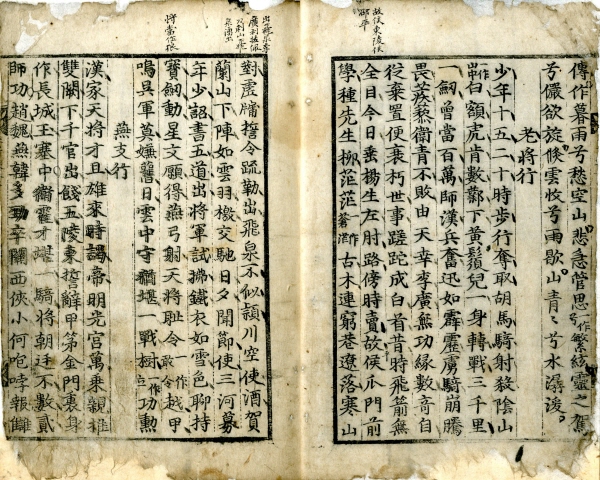 故侯東陵侯
邵平
傳作暮雨兮愁空山悲急管思一作兮繁絃靈之駕
兮儼欲旋倏雲收兮雨歇山青〻兮水潺湲
老將行
少年十五二十時步行奪取胡馬騎射殺陰山
中一作白額虎肯數鄴下黃鬚兒一身轉戰三千里
一劒曾當百萬師漢兵奮迅如霹靂虜騎崩騰
畏蒺藜衛青不敗由天幸李廣無功緣數奇自
從棄置便衰朽世事蹉跎成白首昔時飛箭無
全目今日垂楊生左肘路傍時賣故侯瓜門前
學種先生柳茫茫一作蒼古木連窮巷遼落寒山
對虛牖誓令疏勒出飛泉不似潁川空使酒賀
蘭山下陣如雲羽檄交馳日夕聞節使三河募
年少詔書五道出將軍試拂鐵衣如雪色聊持
寶劒動星文願得燕弓射天將恥令一作敢越甲
鳴吳軍莫嫌舊日雲中守猶堪一戰樹一作立功勳
燕支行
漢家天將才且雄來時謁帝明光宮萬乘親推
雙闕下千官出餞五陵東誓辭甲第金門裏身
作長城玉塞中衛霍才堪一騎將朝廷不數貳
師功趙魏燕韓多勁卒關西俠少何咆哮報讎